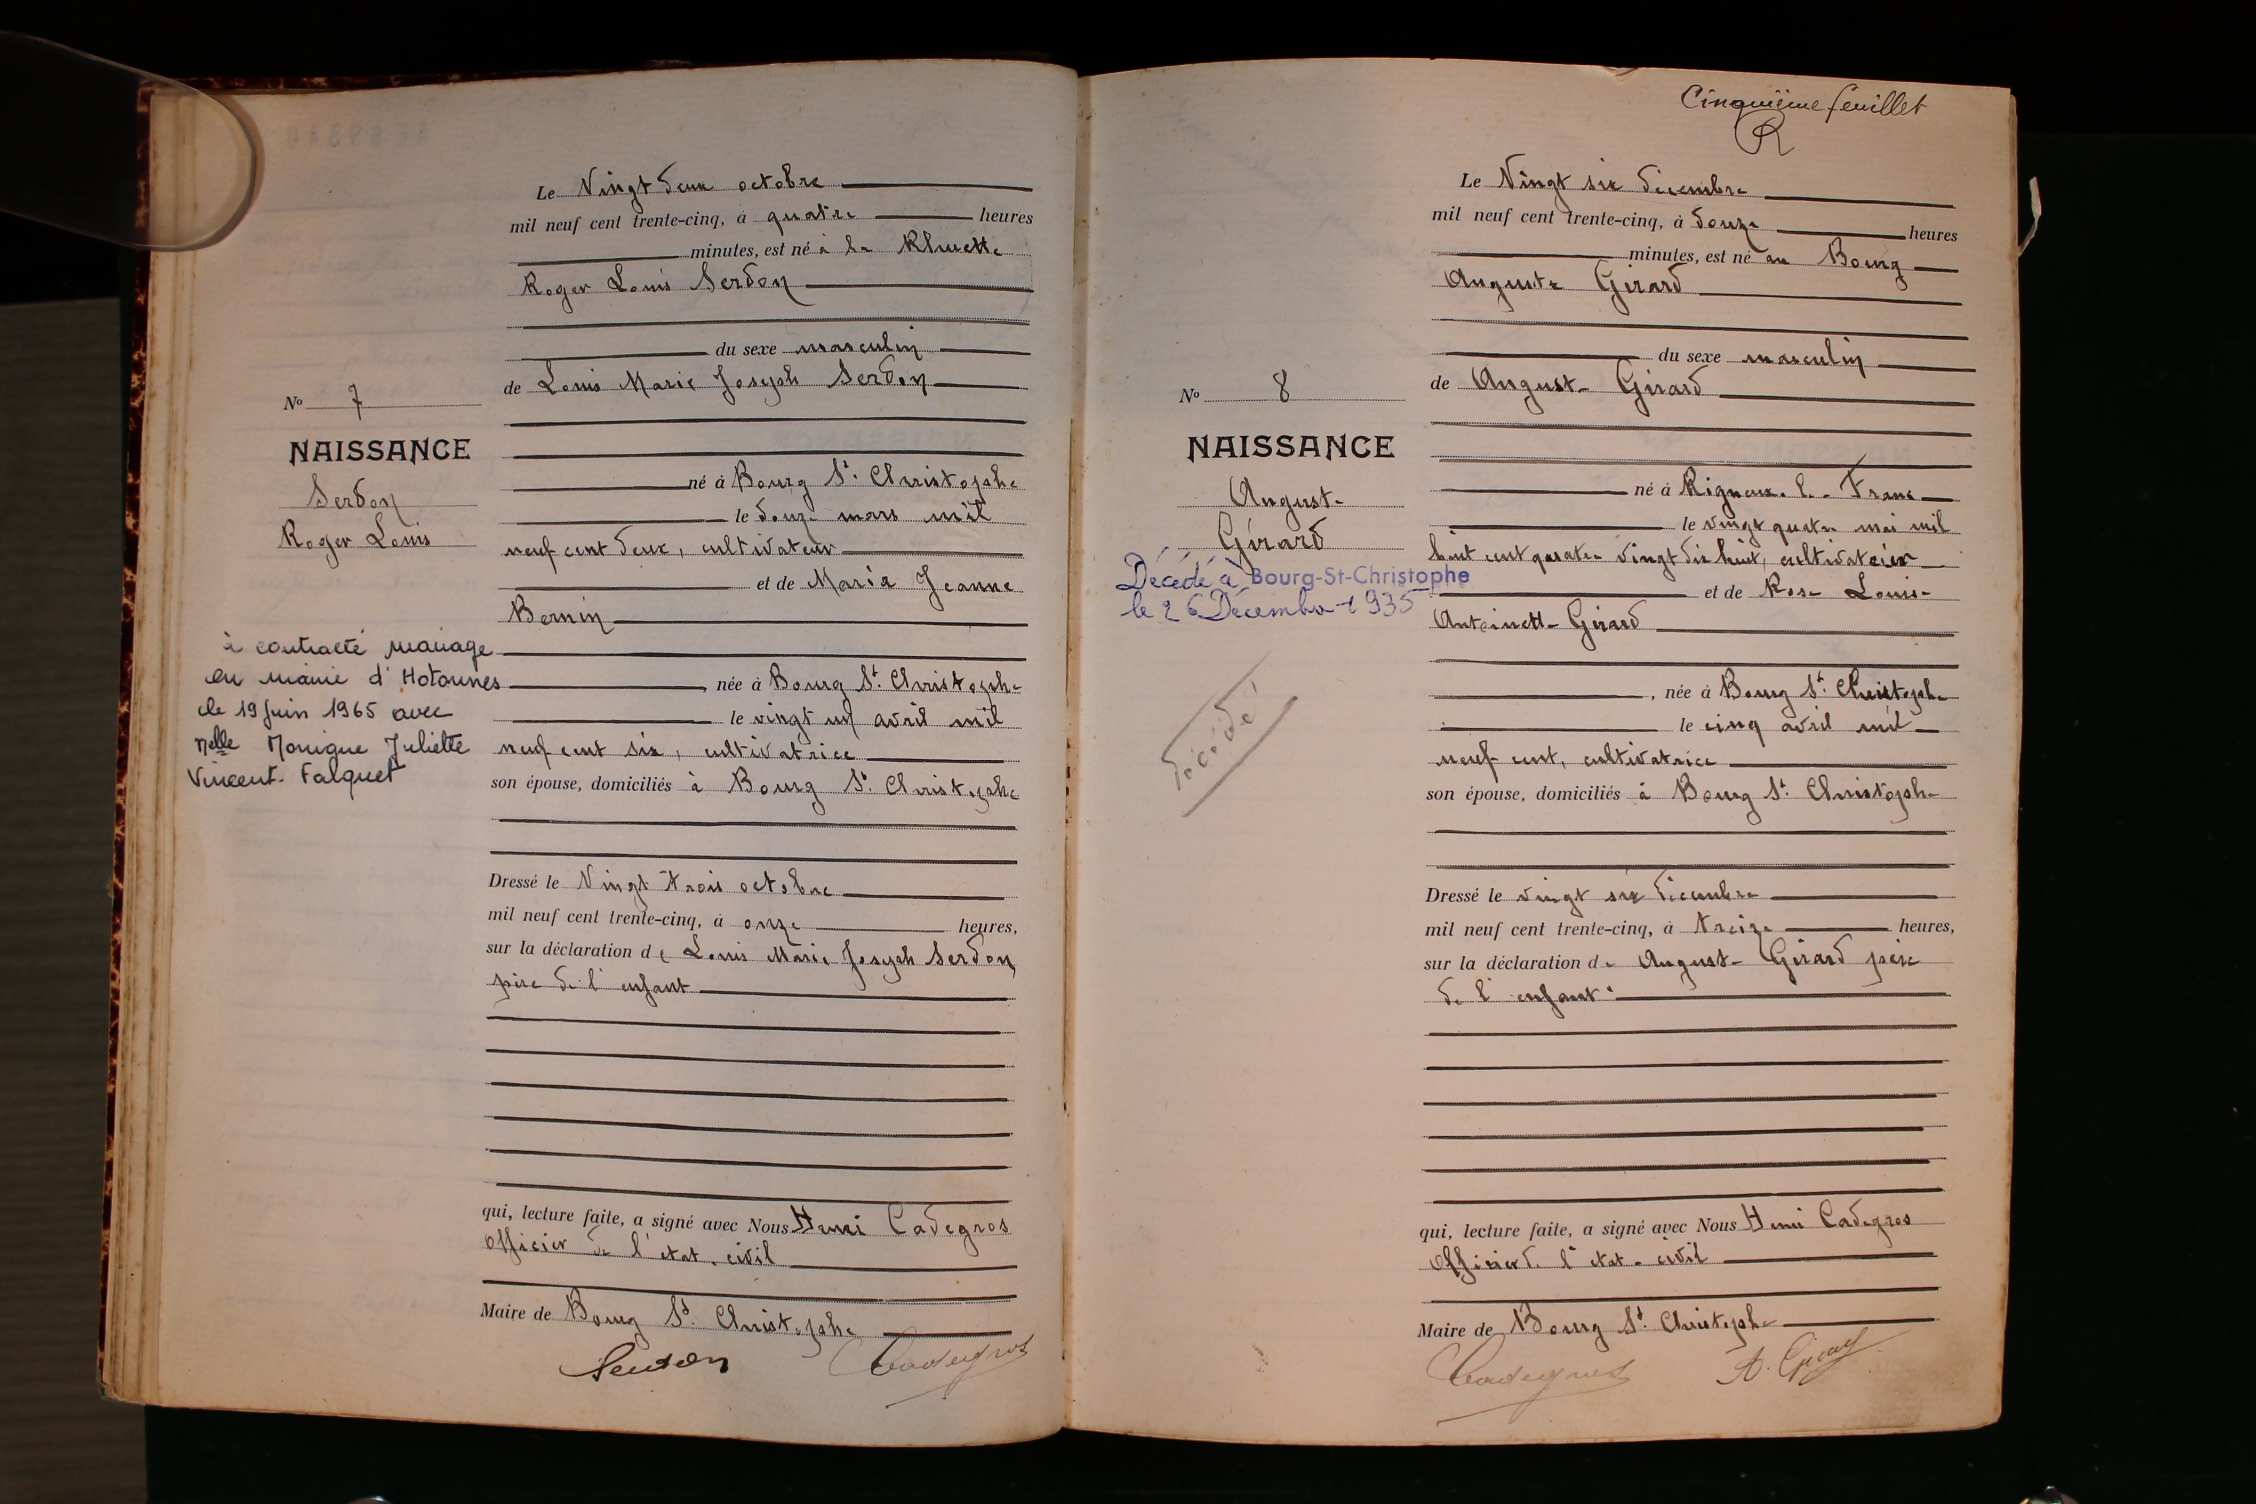 Le Vingt deux octobre
mil neuf cent trente-cinq, à quatre heures
minutes, est né à la
Roger Louis Serdon
du sexe masculin
de Louis Marie Joseph Serdon
No 7
NAISSANCE
Serdon
Roger Louis
né à Bourg St. Christophe
le douze mars mil
neuf cent deux, cultivateur
et de Maria Jeanne
Bernin
à contracté mariage
en mairie d'Hotonnes
le 19 Juin 1965 avec
Melle Monique Juliette
Vincent-Falquet
, née à Bourg St. Christophe
le vingt un avril mil
neuf cent six, cultivatrice
son épouse, domiciliés à Bourg St. Christophe
Dressé le Vingt trois octobre
mil neuf cent trente-cinq, à onze heures,
sur la déclaration de Louis Marie Joseph Serdon,
père de l'enfant
qui, lecture faite, a signé avec Nous Henri Cadegros
Officier de l'état-civil
Maire de Bourg St. Christophe
Serdon Cadegros
Cinquième feuillet
R
Le Vingt six décembre
mil neuf cent trente-cinq, à douze heures
minutes, est né au Bourg
Auguste Girard
du sexe masculin
de Auguste Girard
No 8
NAISSANCE
Auguste
Girard
Décédé à Bourg-St-Christophe
le 26 Décembre 1935
décédé
né à Rigneux-le-Franc
le vingt quatre mai mil
huit cent quatre vingt dix huit, cultivateur
et de Rose Louise
Antoinette Girard
, née à Bourg St. Christophe
le cinq avril mil
neuf cent, cultivatrice
son épouse, domiciliés à Bourg St. Christophe
Dressé le vingt six décembre
mil neuf cent trente-cinq, à treize heures,
sur la déclaration de Auguste Girard père
de l'enfant.
qui, lecture faite, a signé avec Nous Henri Cadegros
Officier de l'état-civil
Maire de Bourg St. Christophe
Cadegros A. Girard